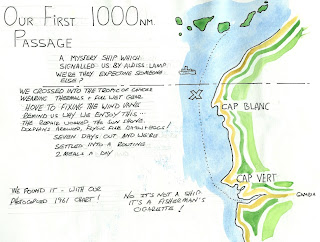 OUR FIRST 1000NM.
PASSAGE
A MYSTERY SHIP WHICH
SIGNALLED US BY ALDISS LAMP.
WERE THEY EXPECTING SOMEONE
ELSE?
WE CROSSED INTO THE TROPIC OF CANCER
WEARING THERMALS + FULL WET GEAR
HOVE TO FIXING THE WIND VANE
BEHIND US WHY WE ENJOY THIS -
THE REPAIR WORKED, THE SUN SHONE,
DOLPHINS AROUND, FLYING FISH
SEVEN DAYS OUT AND WE'RE
SETTLED INTO A ROUTINE
2 MEALS A DAY
X
CAP BLANC
CAP VERT
GAMBIA
WE FOUND IT - WITH OUR
PHOTOCOPIED 1961 CHART!
NO IT'S NOT A SHIP
IT'S A FISHERMAN'S
CIGARETTE!